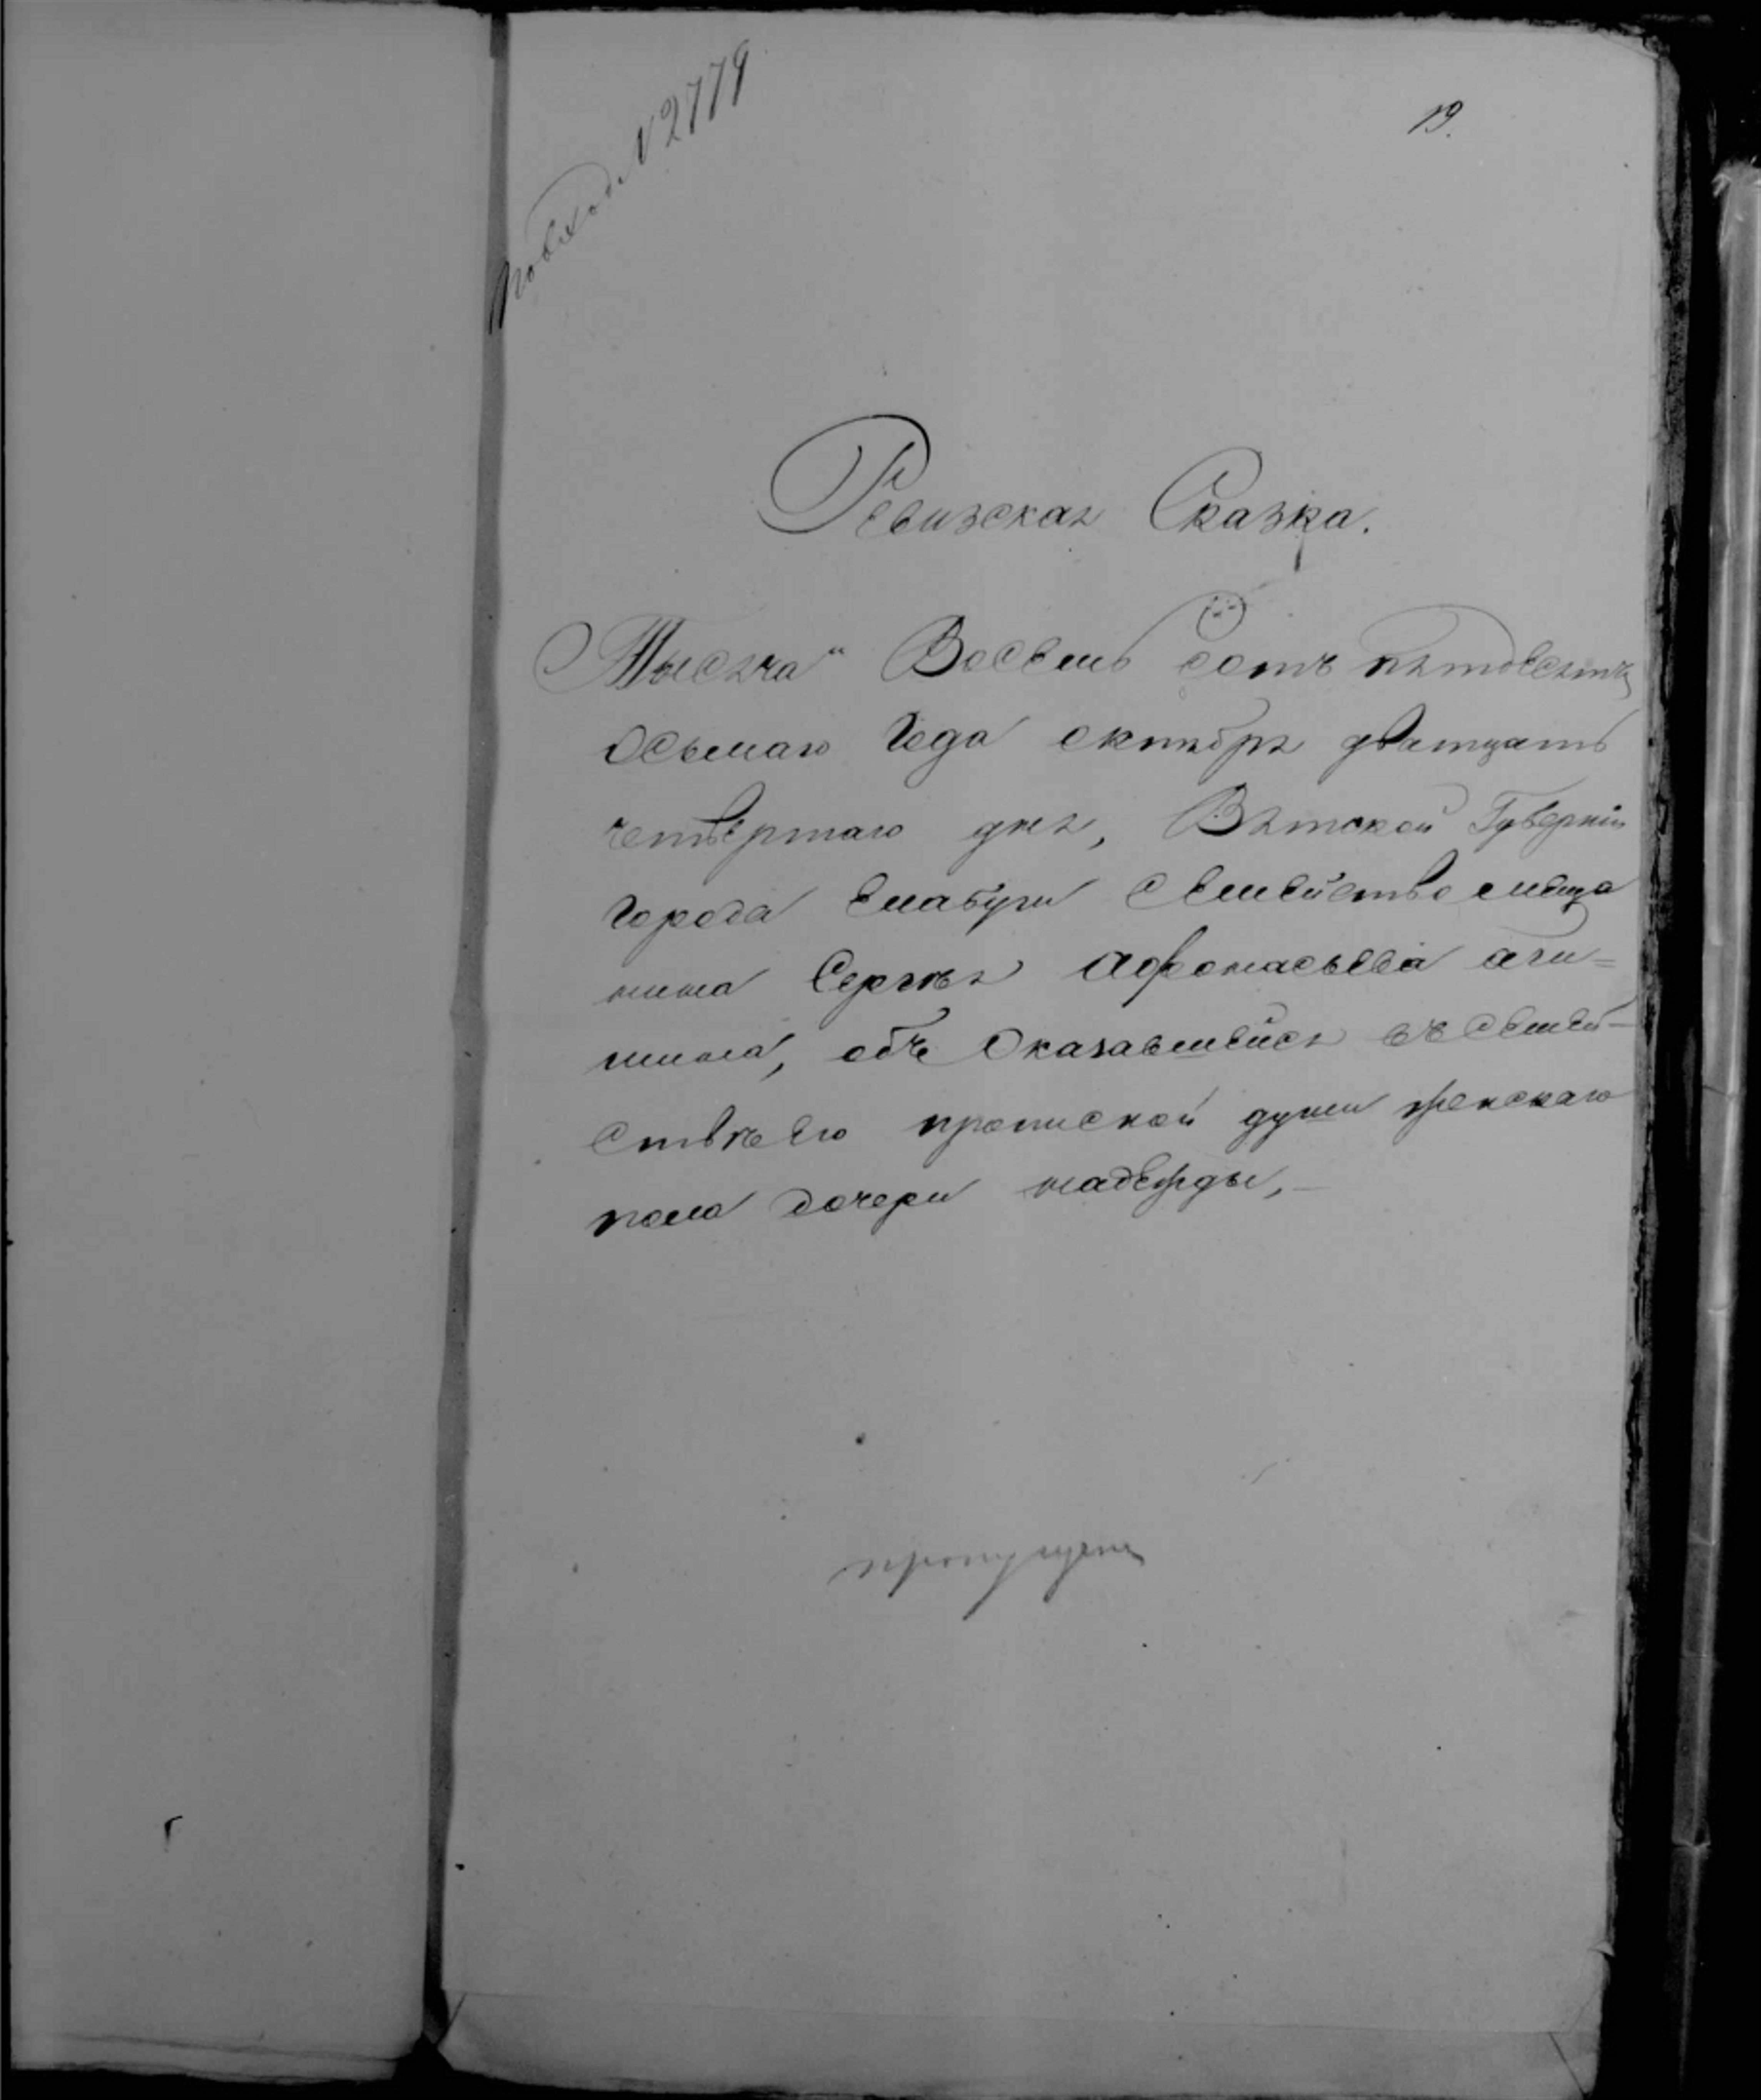 По вход. № 2779
19.
Ревизская Сказка.
Тысяча Восемь сотъ пятдесятъ
Осьмаго Года октября дватцать
четвертаго дня, Вятской Губерніи
города Елабуги Семейство мѣща
нина Сергѣя Афонасьева
обѣ Оказавшейся въ Семей-
ствѣ его прописной души женскаго
пола дочери надежды,